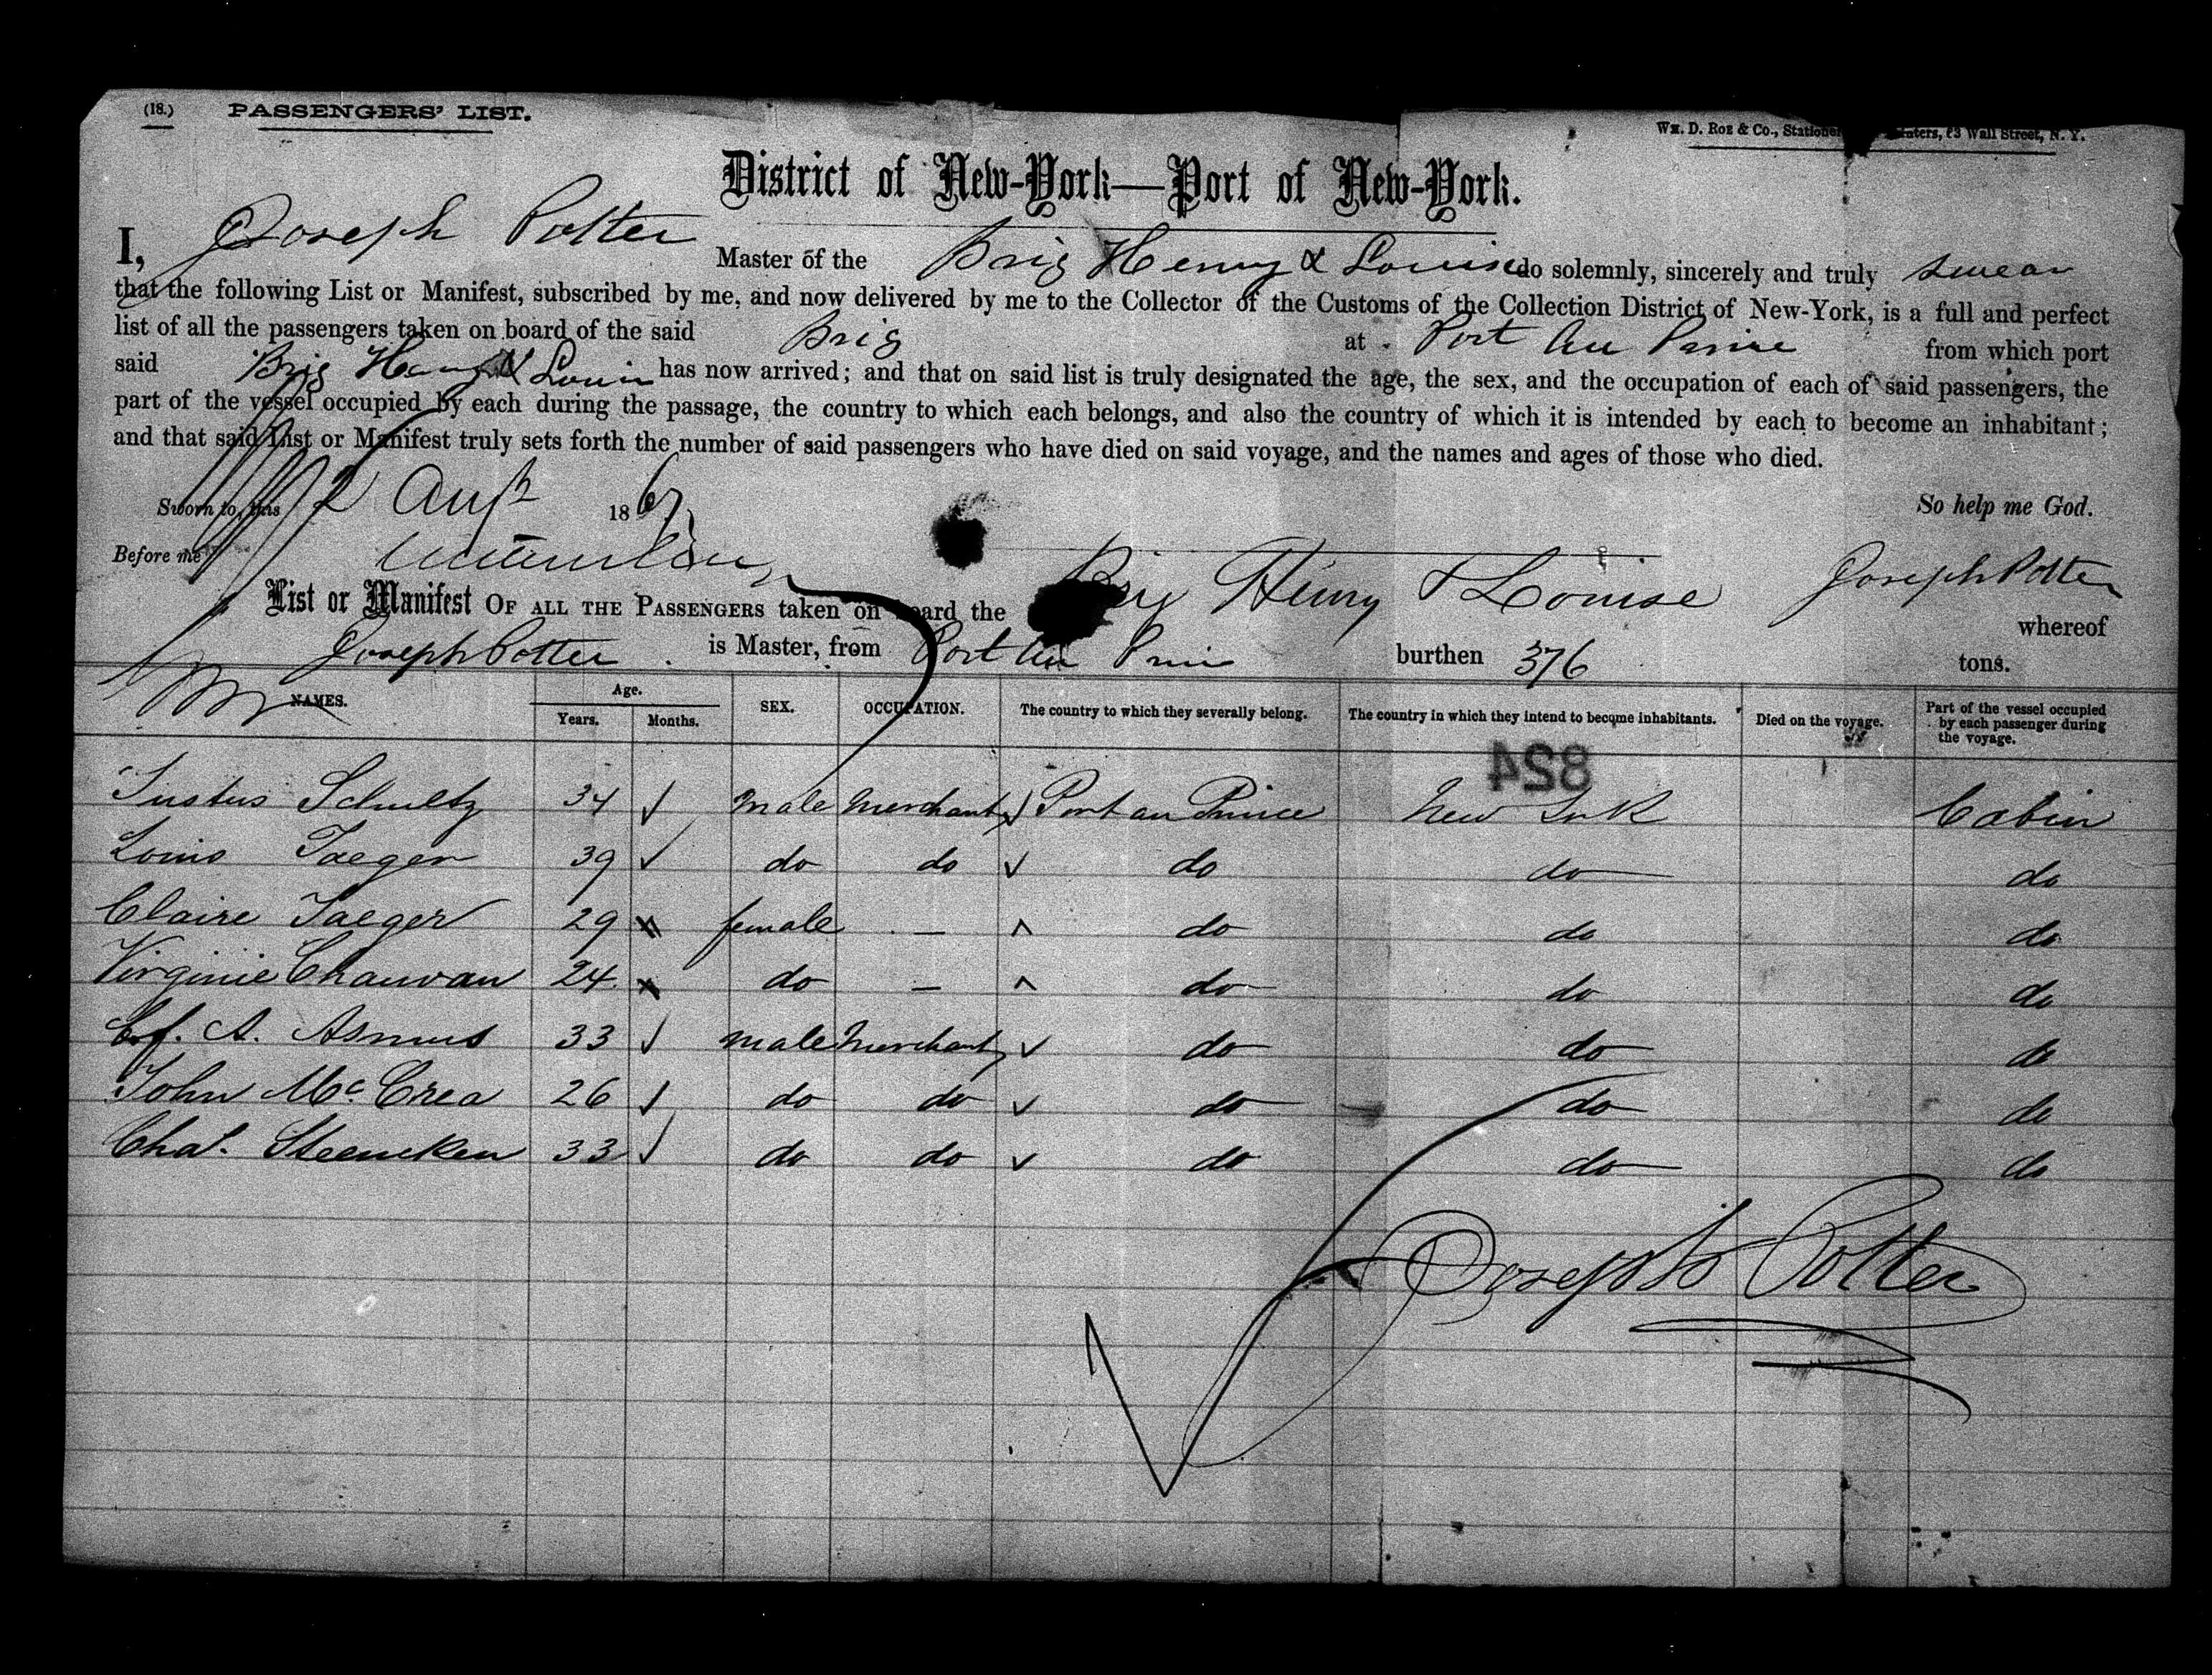 (18.) PASSENGERS' LIST.
WM. D. ROE & Co., Stationers, 63 Wall Street, N. Y.
District of New-York—Port of New-York.
I, Joseph Potter Master of the Brig Henry & Louise do solemnly, sincerely and truly swear
that the following List or Manifest, subscribed by me, and now delivered by me to the Collector of the Customs of the Collection District of New-York, is a full and perfect
list of all the passengers taken on board of the said Brig at Port Au Prince from which port
said Brig Henry & Louise has now arrived; and that on said list is truly designated the age, the sex, and the occupation of each of said passengers, the
part of the vessel occupied by each during the passage, the country to which each belongs, and also the country of which it is intended by each to become an inhabitant;
and that said List or Manifest truly sets forth the number of said passengers who have died on said voyage, and the names and ages of those who died.
Sworn to, this 2 Aug 186 So help me God.
Before me Joseph Potter
List or Manifest OF ALL THE PASSENGERS taken on board the Brig Henry & Louise whereof
Joseph Potter is Master, from Port Au Prince burthen 376 tons.
NAMES. Age. Years. Months. SEX. OCCUPATION. The country to which they severally belong. The country in which they intend to become inhabitants. Died on the voyage. Part of the vessel occupied by each passenger during the voyage.
824
Justus Schultz 34 male Merchant Port au Prince New York Cabin
Louis Jaeger 39 do do do do do
Claire Jaeger 29 female — do do do
Virginie Chauvan 24 do — do do do
A. Asmus 33 male Merchant do do do
John McCrea 26 do do do do do
Chas. Steencken 33 do do do do do
Joseph Potter